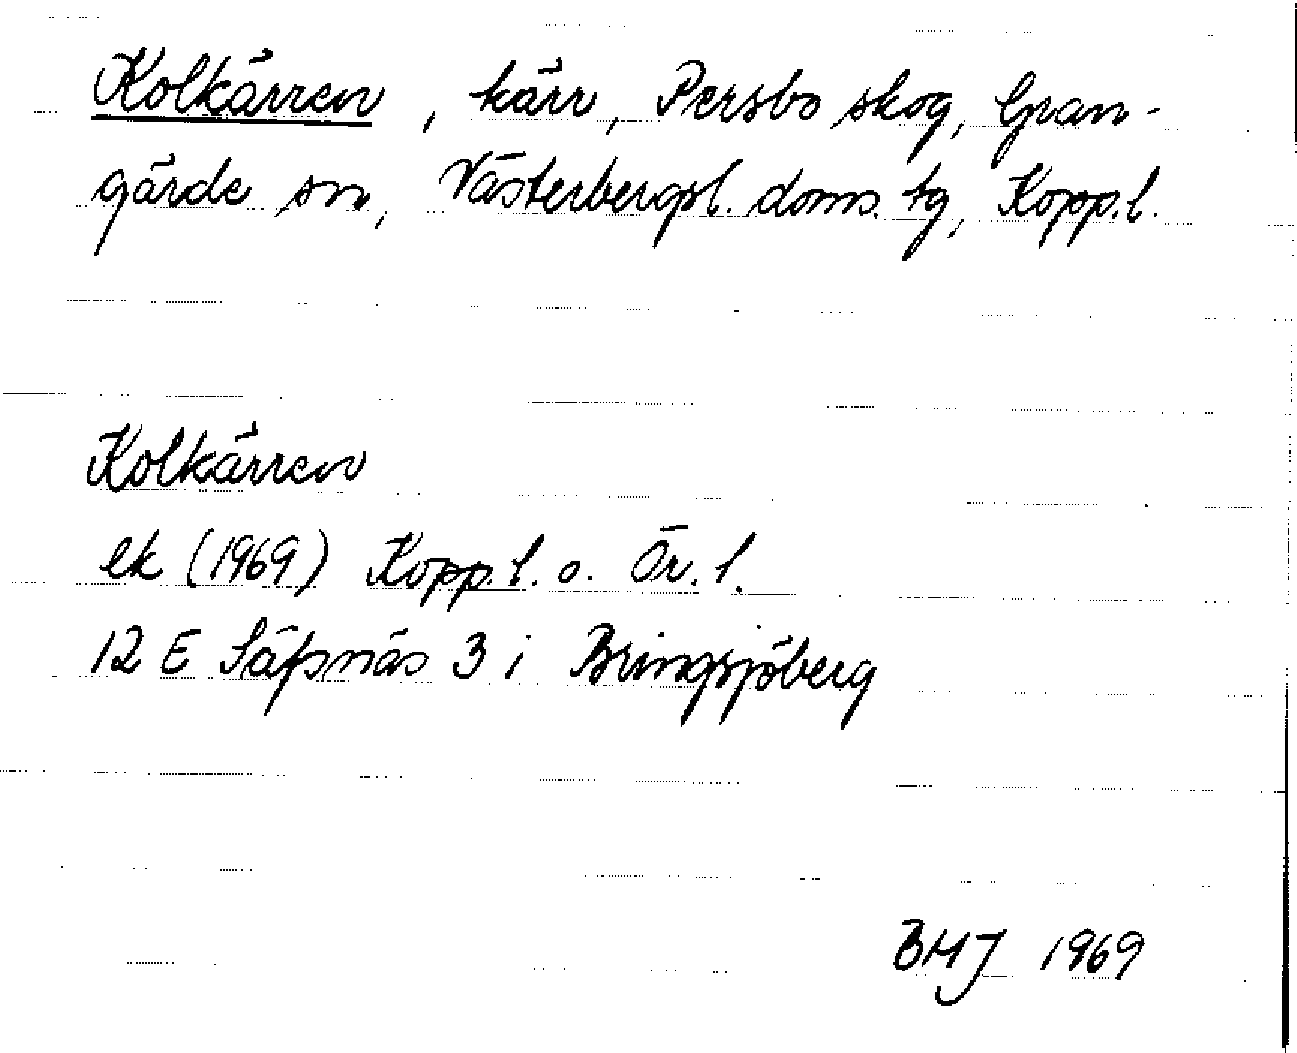 Kolkärren, kärr, Persbo skog, Gran-
gärde sn, Västerbergsl. doms. tg, Kopp.l.
Kolkärren
ek (1969) Kopp.l. o. Ör.l.
12 E Säfsnäs 3 i Bringsjöberg
BMJ 1969